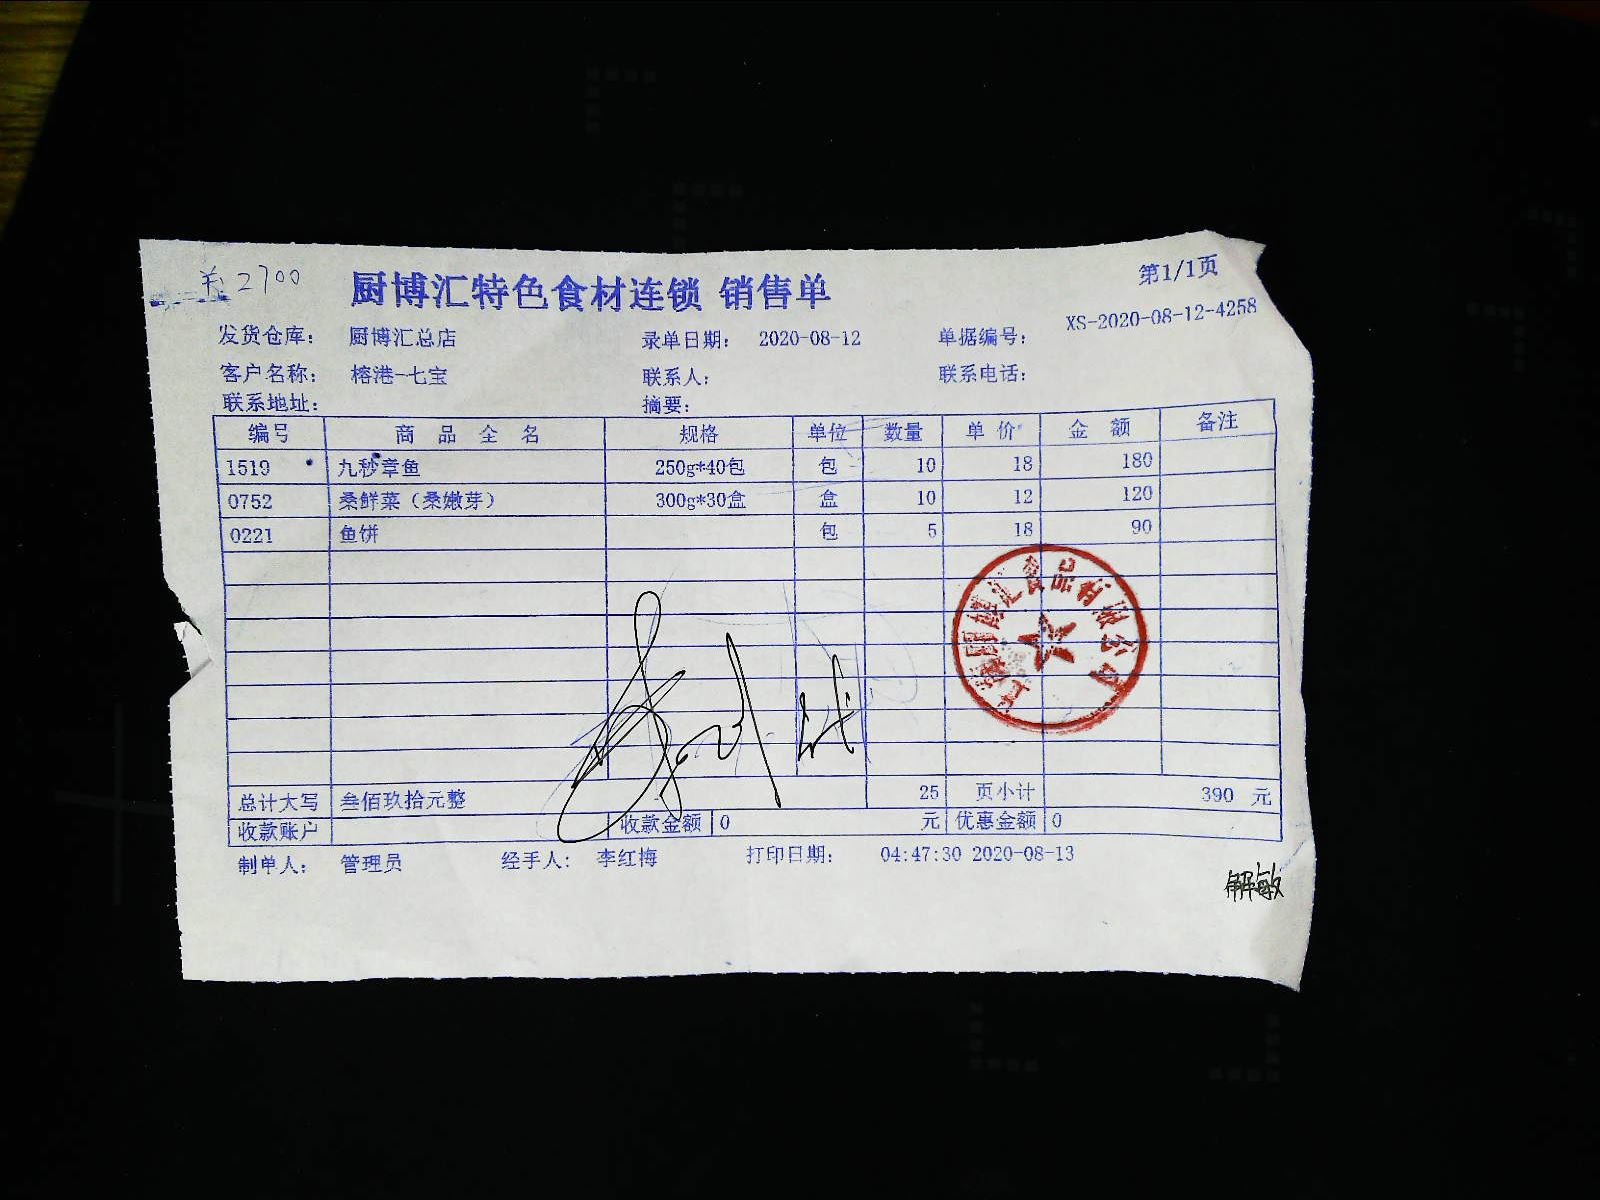 ¥2700
厨博汇特色食材连锁 销售单
第1/1页
发货仓库： 厨博汇总店 录单日期： 2020-08-12 单据编号： XS-2020-08-12-4258
客户名称： 榕港-七宝 联系人： 联系电话：
联系地址： 摘要：
编号 商品全名 规格 单位 数量 单价 金额 备注
1519 九秒章鱼 250g*40包 包 10 18 180
0752 桑鲜菜（桑嫩芽） 300g*30盒 盒 10 12 120
0221 鱼饼 包 5 18 90
总计大写 叁佰玖拾元整 25 页小计 390 元
收款账户 收款金额 0 元 优惠金额 0
制单人： 管理员 经手人： 李红梅 打印日期： 04:47:30 2020-08-13
解敏